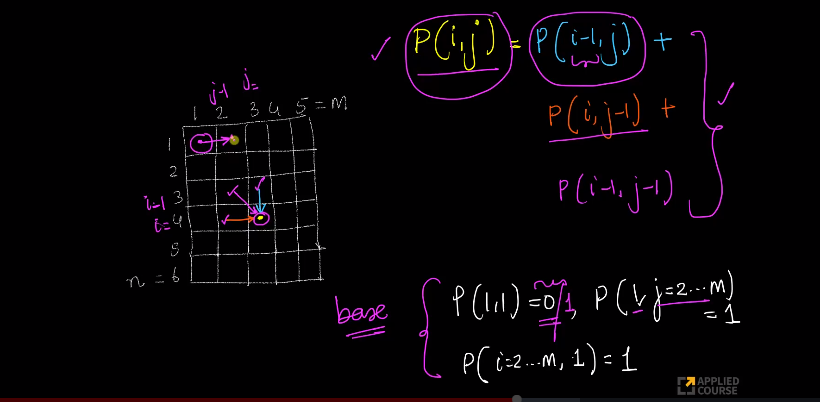 P(i,j) = P(i-1,j) +
P(i,j-1) +
P(i-1,j-1)
j-1 j=
1 2 3 4 5 = M
1
2
i-1 3
i= 4
5
n = 6
base
P(1,1) = 0/1, P(1, j=2...m) = 1
P(i=2...m, 1) = 1
APPLIED
COURSE